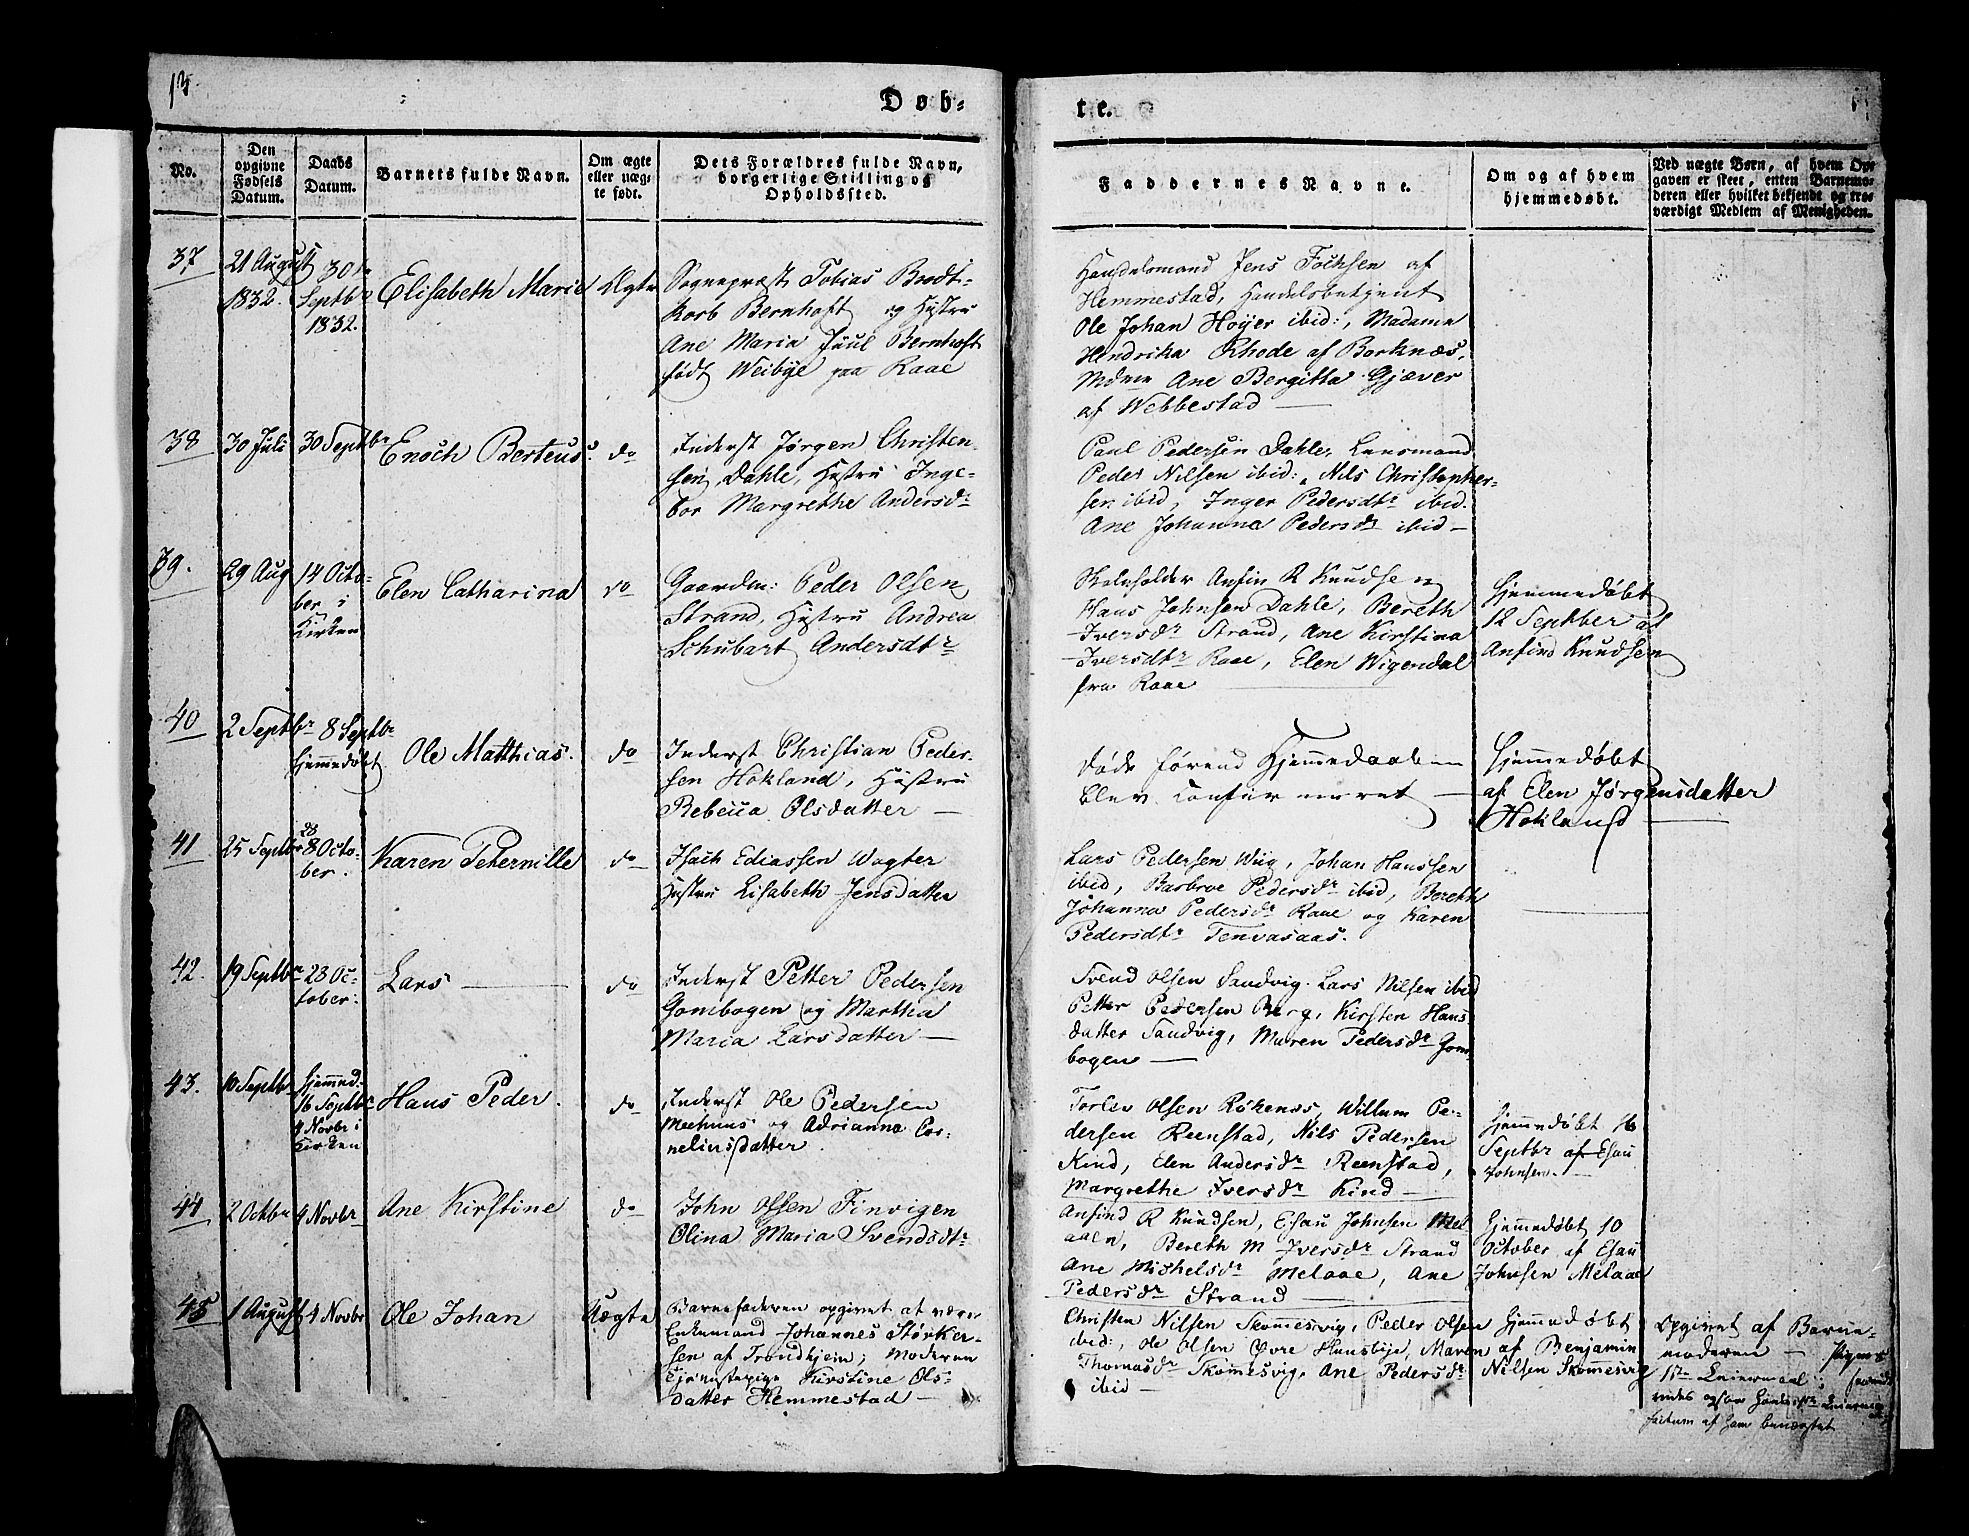 Døb-
te.
No.
Den
opgivne
Fødsels
Datum.
Daabs
Datum.
Barnets fulde Navn.
Om ægte
eller uæg-
te født.
Dets Forældres fulde Navn,
borgerlige Stilling og
Opholdssted.
Faddernes Navne.
Om og af hvem
hjemmedøbt.
Ved uægte Børn, af hvem Op-
gaven er skeet, enten Barnemo-
deren eller hvilket bekjendt og tro-
værdigt Medlem af Menigheden.
37
21 August
1832.
30te
Septbr
1832.
Elisabeth Marie
Ægte
Sognepræst Tobias Brodt-
korb Bernhoft og Hustru
Ane Maria Juul Bernhoft
født Weibye paa Raae
Handelsmand Jens Fochsen af
Hemmestad, Handelsbetjent
Ole Johan Hoyer ibid:, Madame
Hendrika Rhode af Borknæs,
Mdme Ane Bergitta Gjæver
af Webbestad
38
30 Juli
30 Septbr
Enoch Berteus.
do
Inderst Jørgen Christen-
sen Dahle, Hustru Inge-
bor Margrethe Andersdr
Paul Pedersen Dahle, Lensmand
Peder Nilsen ibid:, Nils Christopher-
sen ibid, Inger Pedersdtr ibid.
Ane Johanna Pedersdr ibid
39.
29 Aug
14 Octo-
ber i
Kirken
Elen Catharina
do
Gaardm: Peder Olsen
Strand, Hustru Andrea
Schubart Andersdtr
Skoleholder Anfin R Knudsen
Hans Johnsen Dahle, Bereth
Iversdr Strand, Ane Kirstina
Iversdtr Raae, Elen Wigendal
fra Raae
Hjemmedøbt
12 Septber af
Anfind Knudsen
40
2 Septbr
8 Septbr
hjemmedøbt
Ole Matthias.
do
Inderst Christian Peder-
sen Hokland, Hustru
Rebecca Olsdatter
døde førend Hjemmedaaben
blev confirmeret
Hjemmedøbt
af Elen Jørgensdatter
Hokland
41
25 Septbr
28
8 Octo-
ber.
Karen Petternille
do
Isach Ediassen Wagter
Hustru Lisabeth Jensdatter
Lars Pedersen Wiig, Johan Hanssen
ibid, Barbroe Pedersdr ibid, Bereth
Johanna Pedersdr Raae og Karen
Pedersdtr Tenvasaas.
42.
19 Septbr
28 Oc-
tober.
Lars
do
Inderst Petter Pedersen
Gombogen og Martha
Maria Larsdatter
Svend Olsen Sandvig. Lars Nilsen ibid
Petter Pedersen Berg, Kirsten Hans
datter Sandvig, Maren Pedersdr Gom-
bogen
43.
10 Septbr
hjemmed.
16 Septbr
4 Novbr i
Kirken
Hans Peder.
do
Inderst Ole Pedersen
Meehuus og Adrianna Cor-
neliusdatter.
Torlev Olsen Røkenæs, Willum Pe-
dersen Reenstad, Nils Pedersen
Kind, Elen Andersdr Reenstad,
Margrethe Iversdr Kind
Hjemmedøbt 16
Septbr af Esau
Johnsen.
44
2 Octbr
4 Novbr
Ane Kirstine
do
John Olsen Finvigen
Olina Maria Svendsdtr
Anfind R Knudsen, Esau Johnsen Mel
aaen, Bereth M Iversdr Strand
Ane Michelsdr Melaae, Ane
Pedersdr Strand
Hjemmedøbt 10
October af Esau
Johnsen Melaae
45
1 August
4 Novbr
Ole Johan
Uægte
Barnefaderen opgivet at være
Enkemand Johannes Størker-
sen af Trondhjem; Moderen
Tjenestepige Kirstine Ols-
datter Hemmestad
Christen Nilsen Skommesvig, Peder Olsen
ibid:, Ole Olsen Øvre Huusbye, Maren
Thomasdr Skommesvig, Ane Pedersdr
ibid
Hjemmedøbt
af Benjamin
Nilsen Skommesvig
Opgivet af Barne-
moderen
1ste Leiermaal;
factum af ham benægtet